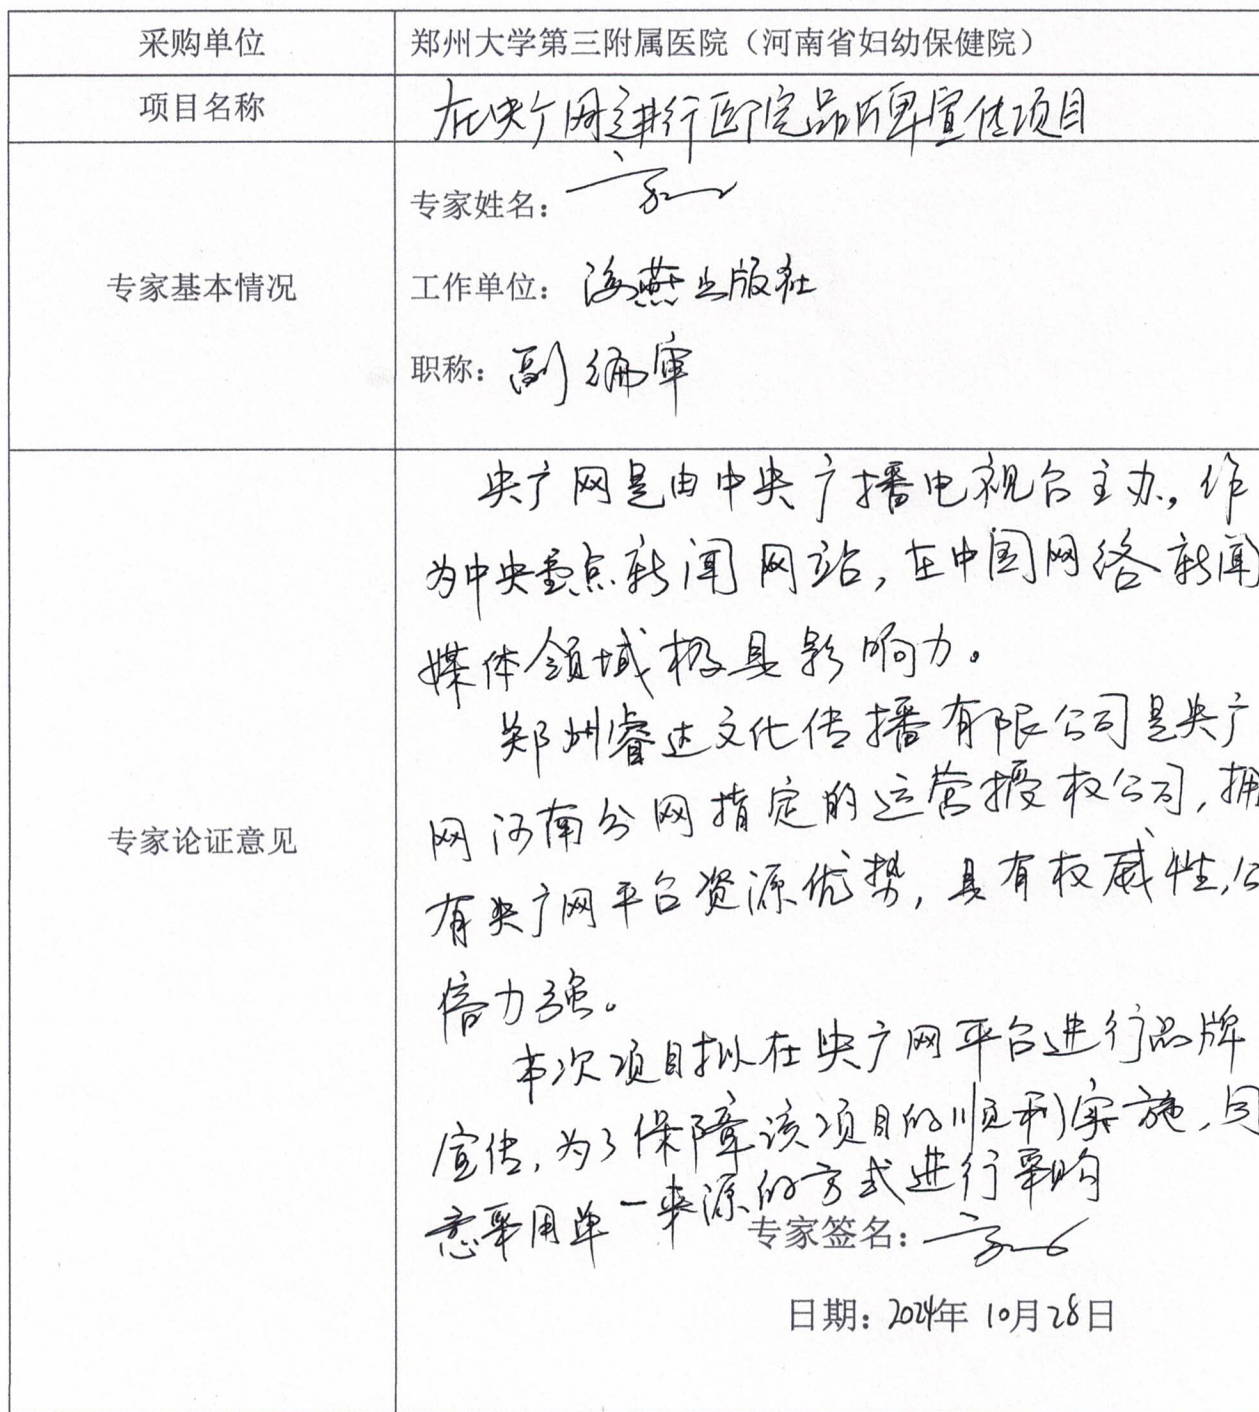 采购单位 郑州大学第三附属医院（河南省妇幼保健院）
项目名称 在央广网进行医院品牌宣传项目
专家基本情况
专家姓名：
工作单位： 海燕出版社
职称： 副编审
专家论证意见
央广网是由中央广播电视台主办，作
为中央重点新闻网站，在中国网络新闻
媒体领域极具影响力。
郑州睿达文化传播有限公司是央广
网河南分网指定的运营授权公司，拥
有央广网平台资源优势，具有权威性，公
信力强。
本次项目拟在央广网平台进行品牌
宣传，为了保障该项目的顺利实施，同
意采用单一来源的方式进行采购
专家签名：
日期：2024年10月28日